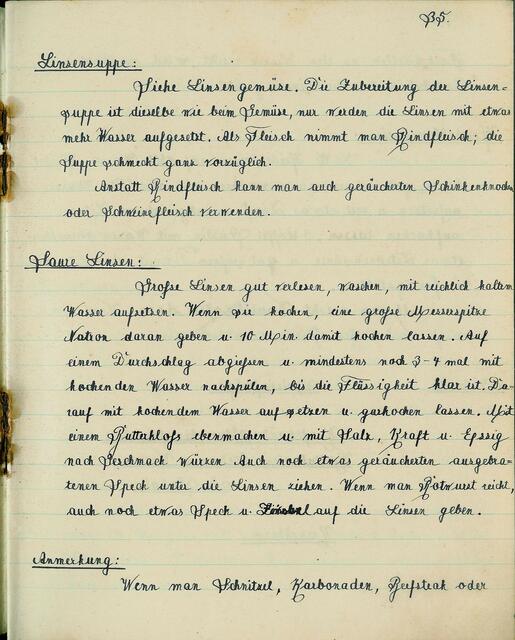 35.
Linsensuppe:
Siehe Linsengemüse. Die Zubereitung der Linsen=
suppe ist dieselbe wie beim Gemüse, nur werden die Linsen mit etwas
mehr Wasser aufgesetzt. Als Fleisch nimmt man Rindfleisch; die
Suppe schmeckt ganz vorzüglich.
Anstatt Rindfleisch kann man auch geräucherten Schinkenknochen
oder Schweinefleisch verwenden.
Saure Linsen:
Große Linsen gut verlesen, waschen, mit reichlich kaltem
Wasser aufsetzen. Wenn sie kochen, eine große Messerspitze
Natron daran geben u. 10 Min. damit kochen lassen. Auf
einem Durchschlag abgießen u. mindestens noch 3-4 mal mit
kochenden Wasser nachspülen, bis die Flüssigkeit klar ist. Da-
rauf mit kochendem Wasser aufsetzen u. garkochen lassen. Mit
einem Butterkloß ebenmachen u. mit Salz, Kraft u. Essig
nach Geschmack würzen. Auch noch etwas geräucherten ausgebra-
tenen Speck unter die Linsen ziehen. Wenn man Rotwurst reicht,
auch noch etwas Speck u. auf die Linsen geben.
Anmerkung:
Wenn man Schnitzel, Karbonaden, Beefsteak oder